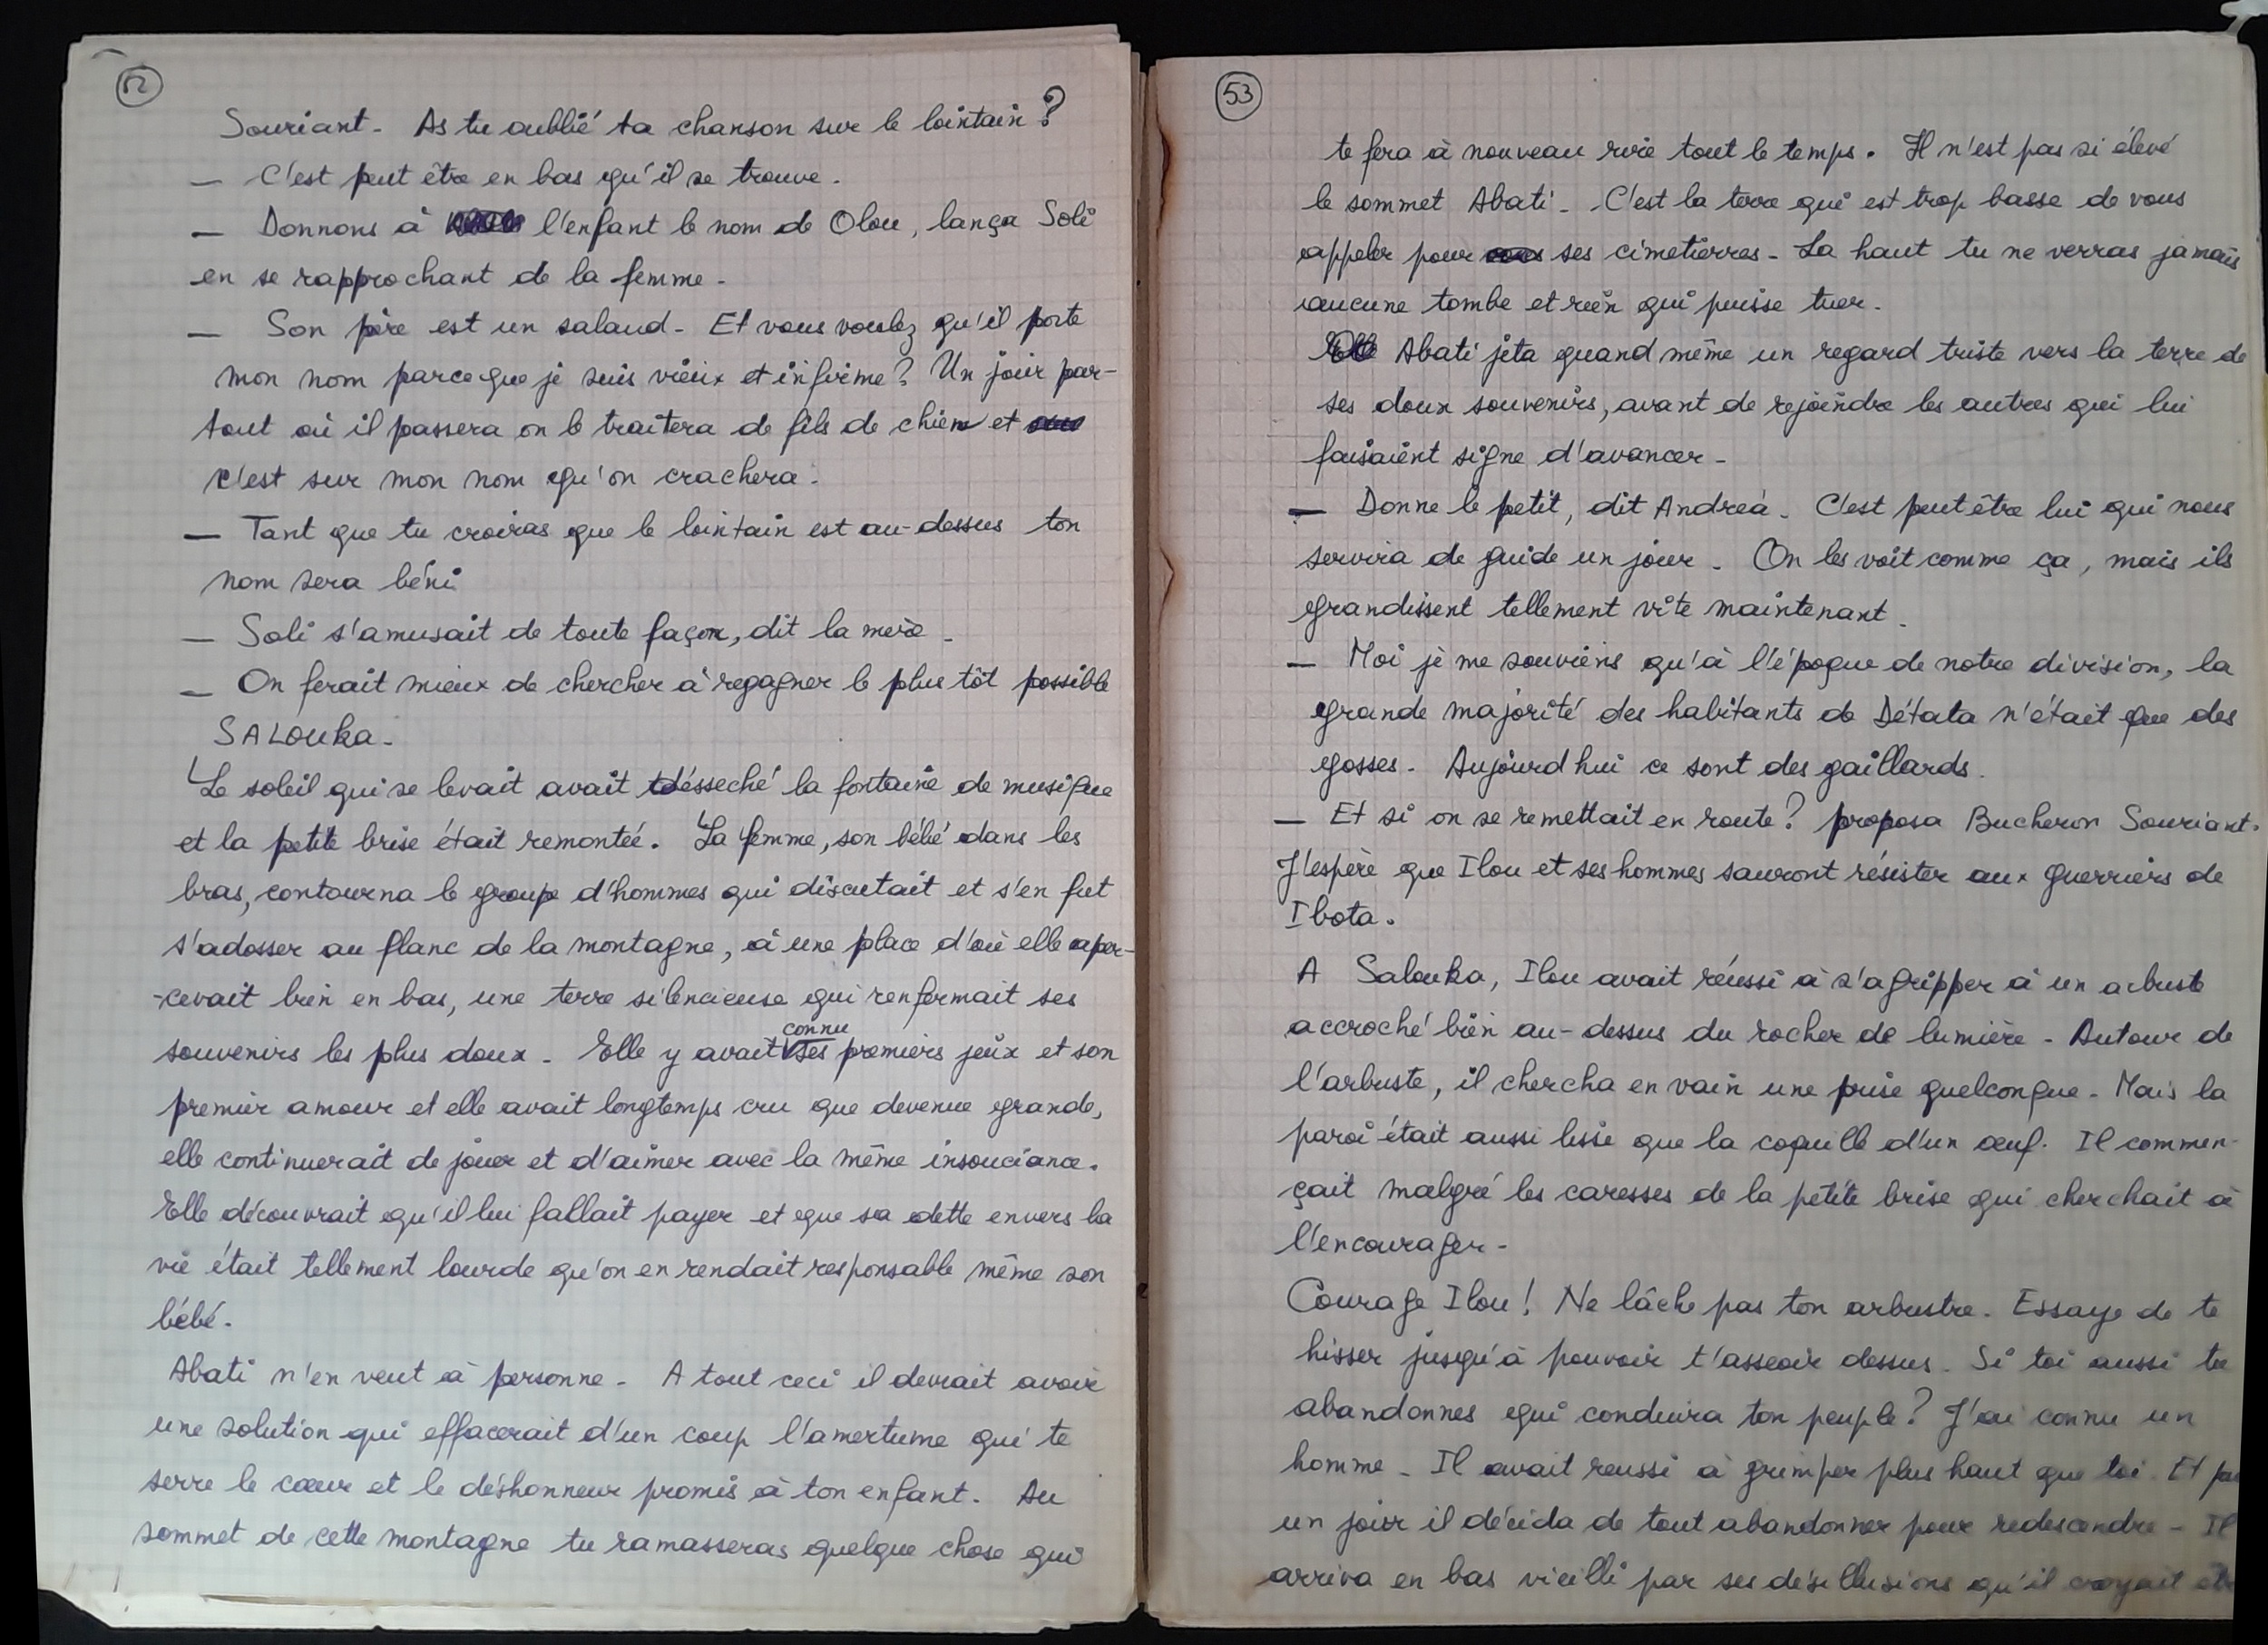 52
Souriant. As tu oublié ta chanson sur le lointain ?
— C'est peut être en bas qu'il se trouve.
— Donnons à l'enfant le nom de Olou, lança Soli
en se rapprochant de la femme.
— Son père est un salaud. Et vous voulez qu'il porte
mon nom parceque je suis vieux et infirme ? Un jour par-
tout où il passera on le traitera de fils de chien et
c'est sur mon nom qu'on crachera.
— Tant que tu croiras que le lointain est au-dessus ton
nom sera béni
— Soli s'amusait de toute façon, dit la mère.
— On ferait mieux de chercher à regagner le plus tôt possible
SALOUKA.
Le soleil qui se levait avait désseché la fontaine de musique
et la petite brise était remontée. La femme, son bébé dans les
bras, contourna le groupe d'hommes qui discutait et s'en fut
s'adosser au flanc de la montagne, à une place d'où elle aper-
-cevait bien en bas, une terre silencieuse qui renfermait ses
souvenirs les plus doux. Elle y avait connu ses premiers jeux et son
premier amour et elle avait longtemps cru que devenue grande,
elle continuerait de jouer et d'aimer avec la même insouciance.
Elle découvrait qu'il lui fallait payer et que sa dette envers la
vie était tellement lourde qu'on en rendait responsable même son
bébé.
Abati n'en veut à personne. A tout ceci il devrait avoir
une solution qui effacerait d'un coup l'amertume qui te
serre le cœur et le déshonneur promis à ton enfant. Au
sommet de cette montagne tu ramasseras quelque chose qui
53
te fera à nouveau rire tout le temps. Il n'est pas si élevé
le sommet Abati. C'est la terre qui est trop basse de vous
appeler pour ses cimetierres. La haut tu ne verras jamais
aucune tombe et rien qui puisse tuer.
Abati jeta quand même un regard triste vers la terre de
ses doux souvenirs, avant de rejoindre les autres qui lui
faisaient signe d'avancer.
— Donne le petit, dit Andréa. C'est peut être lui qui nous
servira de guide un jour. On les voit comme ça, mais ils
grandissent tellement vite maintenant.
— Moi je me souviens qu'à l'époque de notre division, la
grande majorité des habitants de Détata n'était que des
gosses. Aujourd'hui ce sont des gaillards.
— Et si on se remettait en route ? proposa Bucheron Souriant.
J'espère que Ilou et ses hommes sauront résister aux guerriers de
Ibota.
A Salouka, Ilou avait réussi à s'agripper à un arbuste
accroché bien au-dessus du rocher de lumière. Autour de
l'arbuste, il chercha en vain une prise quelconque. Mais la
paroi était aussi lisse que la coquille d'un œuf. Il commen-
çait malgré les caresses de la petite brise qui cherchait à
l'encourager.
Courage Ilou ! Ne lâche pas ton arbustre. Essaye de te
hisser jusqu'à pouvoir t'asseoir dessus. Si toi aussi tu
abandonnes qui conduira ton peuple ? J'ai connu un
homme. Il avait reussi à grimper plus haut que toi. Et
un jour il décida de tout abandonner pour redescendre. Il
arriva en bas vieilli par ses désillusions qu'il croyait